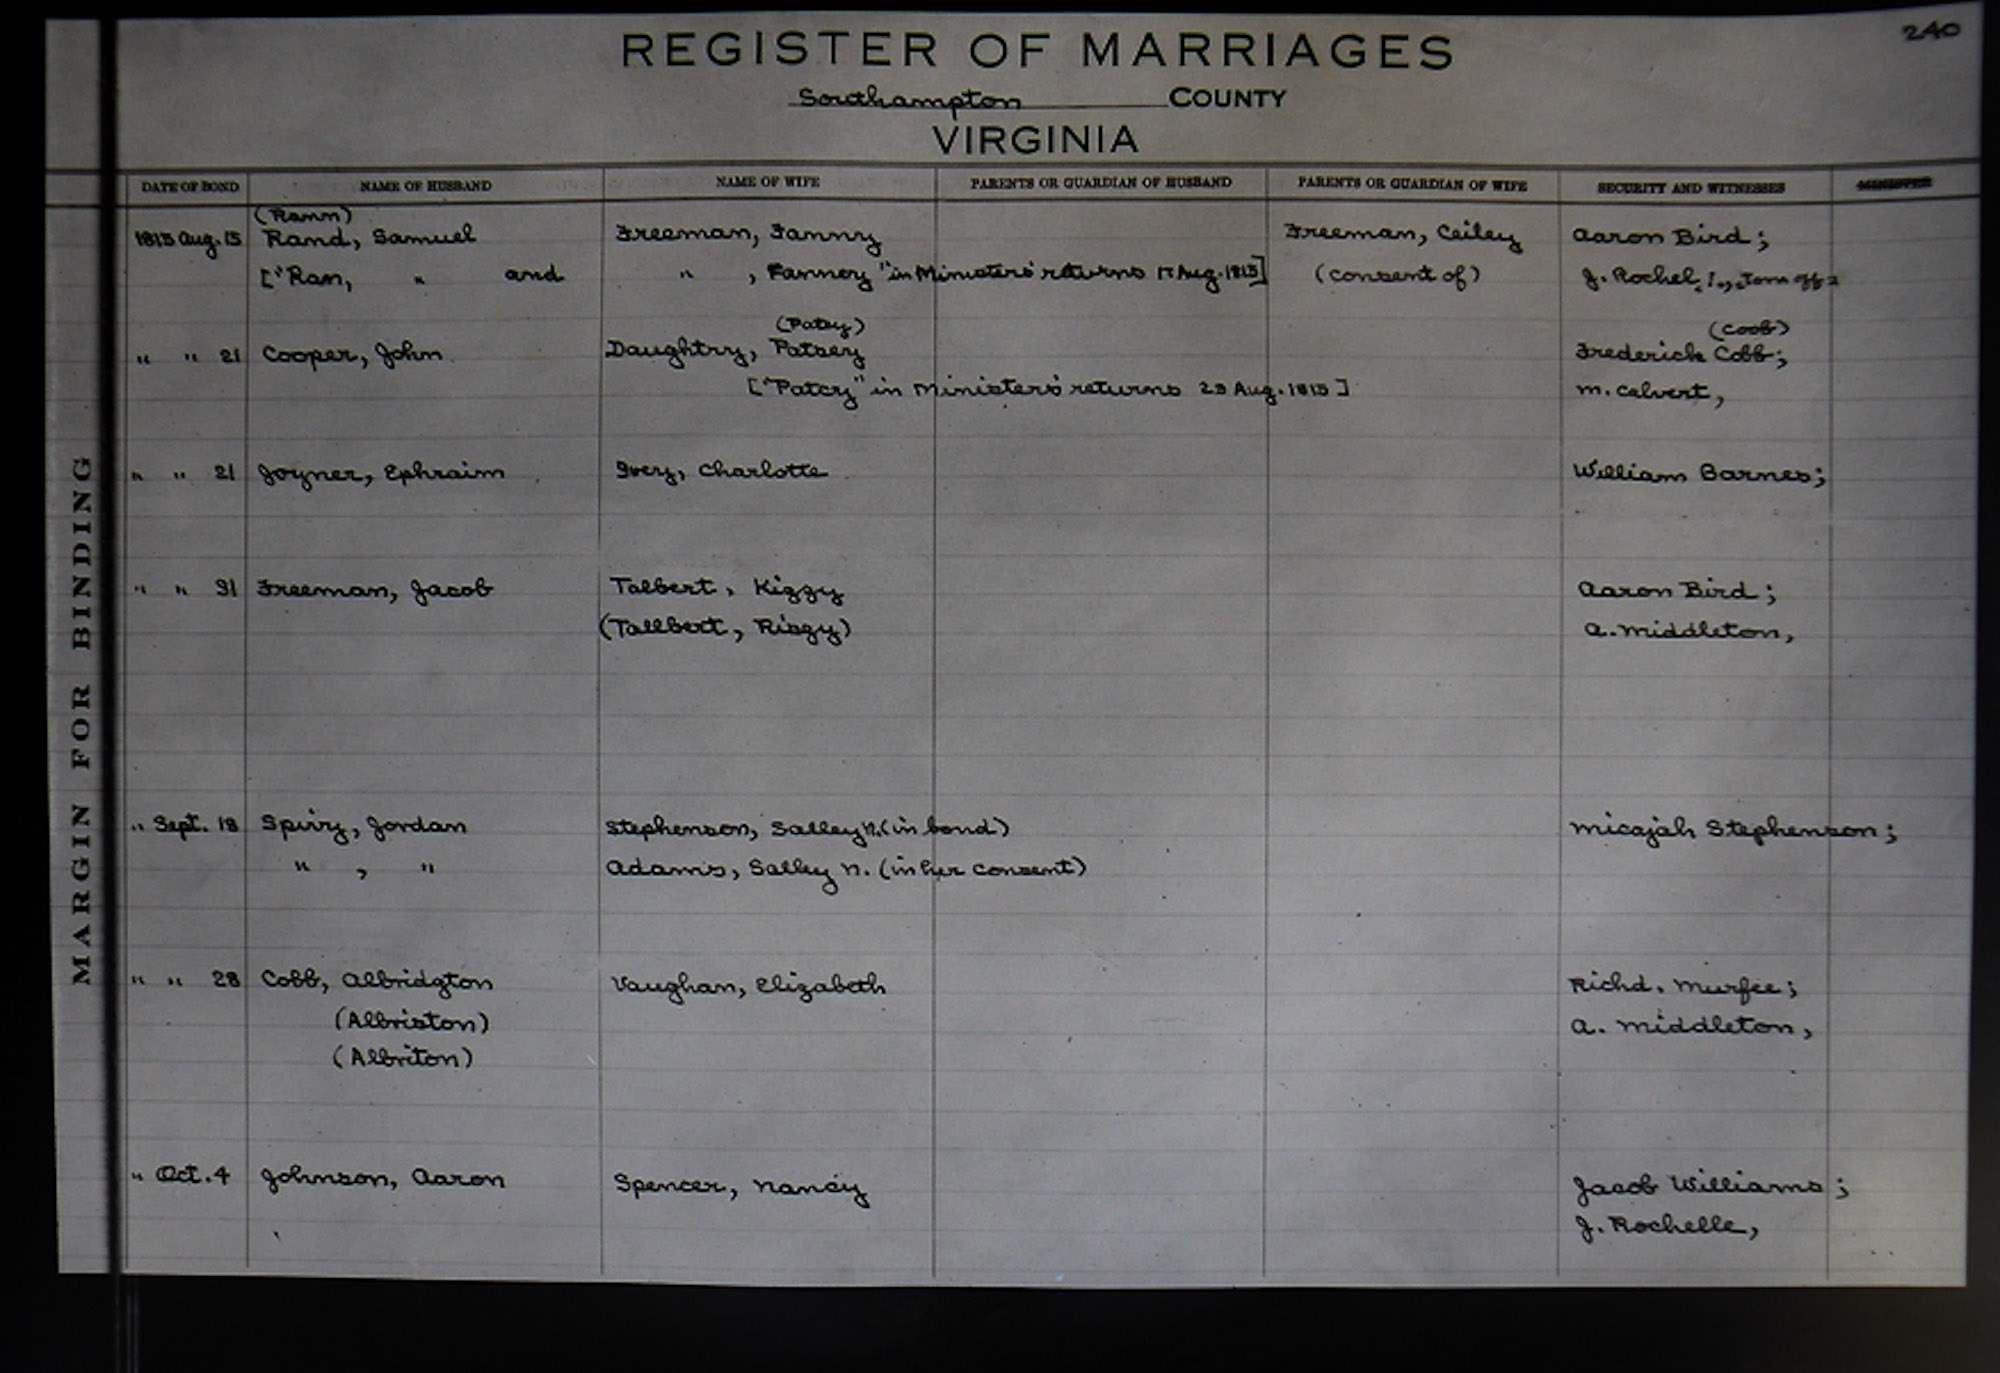 240
REGISTER OF MARRIAGES
Southampton COUNTY
VIRGINIA
MARGIN FOR BINDING
DATE OF BOND NAME OF HUSBAND NAME OF WIFE PARENTS OR GUARDIAN OF HUSBAND PARENTS OR GUARDIAN OF WIFE SECURITY AND WITNESSES MINISTER
(Rann)
1815 Aug. 15 Rand, Samuel Freeman, Fanny Freeman, Ceiley Aaron Bird;
["Ran, " and " , Fannery" in Ministers' returns 17 Aug. 1815] (consent of) J. Rochel, Torn off
(Patsy) (Coob)
" " 21 Cooper, John Daughtry, Patsey Frederick Cobb;
["Patcy" in Ministers' returns 23 Aug. 1815] M. Calvert,
" " 21 Joyner, Ephraim Ivey, Charlotte William Barnes;
" " 31 Freeman, Jacob Talbert, Kizzy Aaron Bird;
(Tallbert, Risgy) A. Middleton,
" Sept. 18 Spivy, Jordan Stephenson, Salley N. (in bond) Micajah Stephenson;
" , " Adams, Salley N. (in her consent)
" " 28 Cobb, Albridgton Vaughan, Elizabeth Richd. Murfee;
(Albriston) A. Middleton,
(Albriton)
" Oct. 4 Johnson, Aaron Spencer, Nancy Jacob Williams;
J. Rochelle,